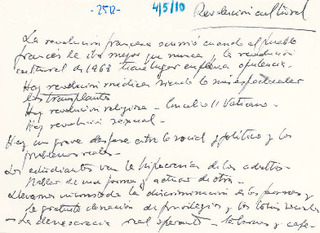 -252-
4/5/10
Revolución cultural
La revolución francesa ocurrió cuando el pueblo
francés le iba mejor que nunca. La revolución
cultural de 1968 tiene lugar en plena opulencia.
Hay revolución médica siendo lo más espectacular
los transplantes
Hay revolución religiosa - Concilio II Vaticano.
Hay revolución sexual.
Hay un grave desfase entre lo social y político y los
problemas reales.
Los estudiantes ven la hipocresía de los adultos.
Hablar de una forma y actuar de otra.
Llevamos de la discriminación de los
La de privilegios y los
La democracia real